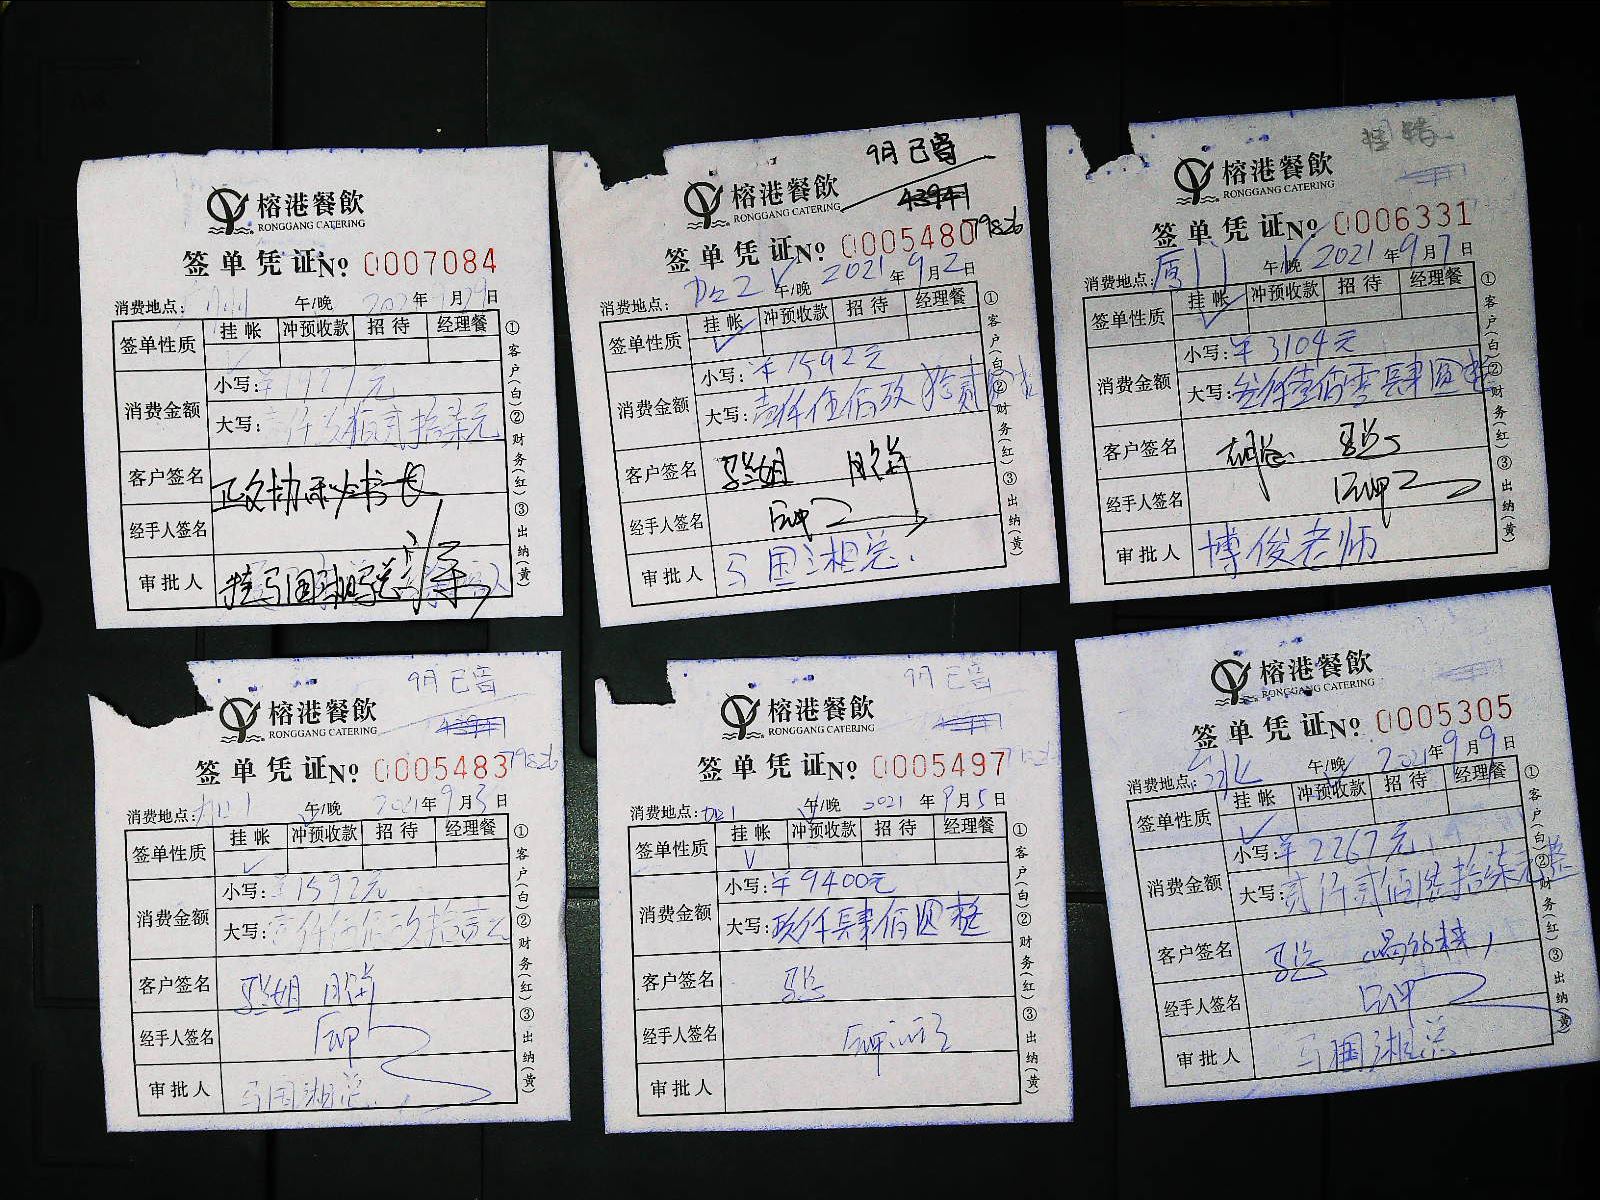 榕港餐飲
RONGGANG CATERING
签单凭证№ 0007084
消费地点: 午/晚 2021年 月29日
签单性质 挂帐 冲预收款 招待 经理餐
消费金额 小写:¥1927元
大写:壹仟玖佰贰拾柒元
客户签名 政协秘书长
经手人签名
审批人
①客户(白)②财务(红)③出纳(黄)
9月已音
4394
榕港餐飲
RONGGANG CATERING
签单凭证№ 0005480
7982.6
消费地点: 午/晚 2021年9月2日
签单性质 挂帐 冲预收款 招待 经理餐
消费金额 小写:¥1592元
大写:壹仟伍佰玖拾贰圆整
客户签名
经手人签名
审批人 马国湘总.
①客户(白)②财务(红)③出纳(黄)
榕港餐飲
RONGGANG CATERING
签单凭证№ 0006331
消费地点:厦门 午/晚 2021年9月7日
签单性质 挂帐 冲预收款 招待 经理餐
消费金额 小写:¥3104元
大写:叁仟壹佰零肆圆整
客户签名 胡总 马总
经手人签名
审批人 博俊老师
①客户(白)②财务(红)③出纳(黄)
9月已音
榕港餐飲
RONGGANG CATERING
签单凭证№ 0005483
消费地点: 午/晚 2021年9月3日
签单性质 挂帐 冲预收款 招待 经理餐
消费金额 小写:¥1592元
大写:壹仟伍佰玖拾贰元
客户签名
经手人签名
审批人 马国湘总.
①客户(白)②财务(红)③出纳(黄)
9月已音
榕港餐飲
RONGGANG CATERING
签单凭证№ 0005497
消费地点: 午/晚 2021年9月5日
签单性质 挂帐 冲预收款 招待 经理餐
消费金额 小写:¥9400元
大写:玖仟肆佰圆整
客户签名 马总
经手人签名
审批人
①客户(白)②财务(红)③出纳(黄)
榕港餐飲
RONGGANG CATERING
签单凭证№ 0005305
消费地点: 午/晚 2021年9月9日
签单性质 挂帐 冲预收款 招待 经理餐
消费金额 小写:¥2267元
大写:贰仟贰佰陆拾柒元整
客户签名 马总
经手人签名
审批人 马国湘总
①客户(白)②财务(红)③出纳(黄)